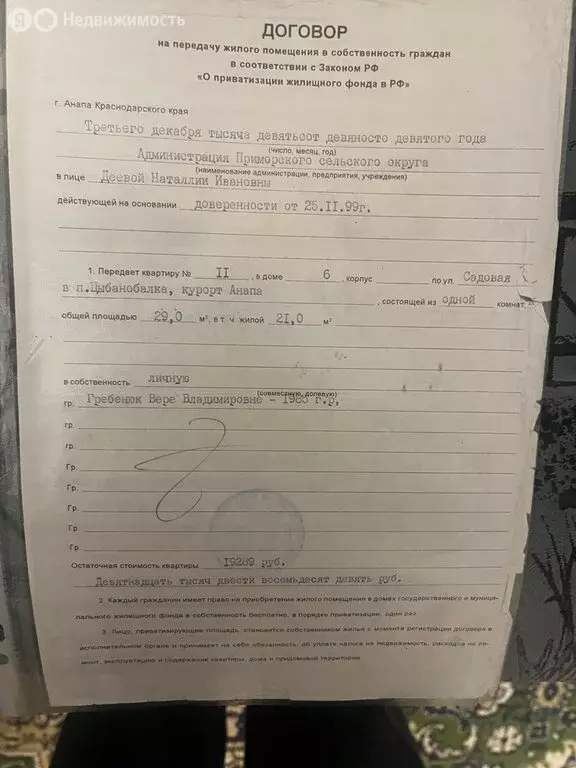 Я Недвижимость
ДОГОВОР
на передачу жилого помещения в собственность граждан
в соответствии с Законом РФ
«О приватизации жилищного фонда в РФ»
г. Анапа Краснодарского края
Третьего декабря тысяча девятьсот девяносто девятого года
(число, месяц, год)
Администрация Приморского сельского округа
(наименование администрации, предприятия, учреждения)
в лице Деевой Наталлии Ивановны
действующей на основании доверенности от 25.II.99г.
1. Передает квартиру № II , в доме 6 , корпус по ул. Садовая
в п.Цыбанобалка, курорт Анапа , состоящей из одной комнат
общей площадью 29,0 м², в т. ч. жилой 21,0 м²
в собственность личную
(совместную, долевую)
гр. Гребенюк Вере Владимировне - 1985 г.р,
гр.
гр.
Гр.
Гр.
Гр.
Гр
Гр.
Остаточная стоимость квартиры 19289 руб.
Девятнадцать тысяч двести восемьдесят девять руб.
2. Каждый гражданин имеет право на приобретение жилого помещения в домах государственного и муници-
пального жилищного фонда в собственность бесплатно, в порядке приватизации, один раз
3. Лицо, приватизирующее площадь, становится собственником жилья с момента регистрации договора в
исполнительном органе и принимает на себя обязанность: об уплате налога на недвижимость, расходов на ре-
монт, эксплуатацию и содержание квартиры, дома и придомовой территории